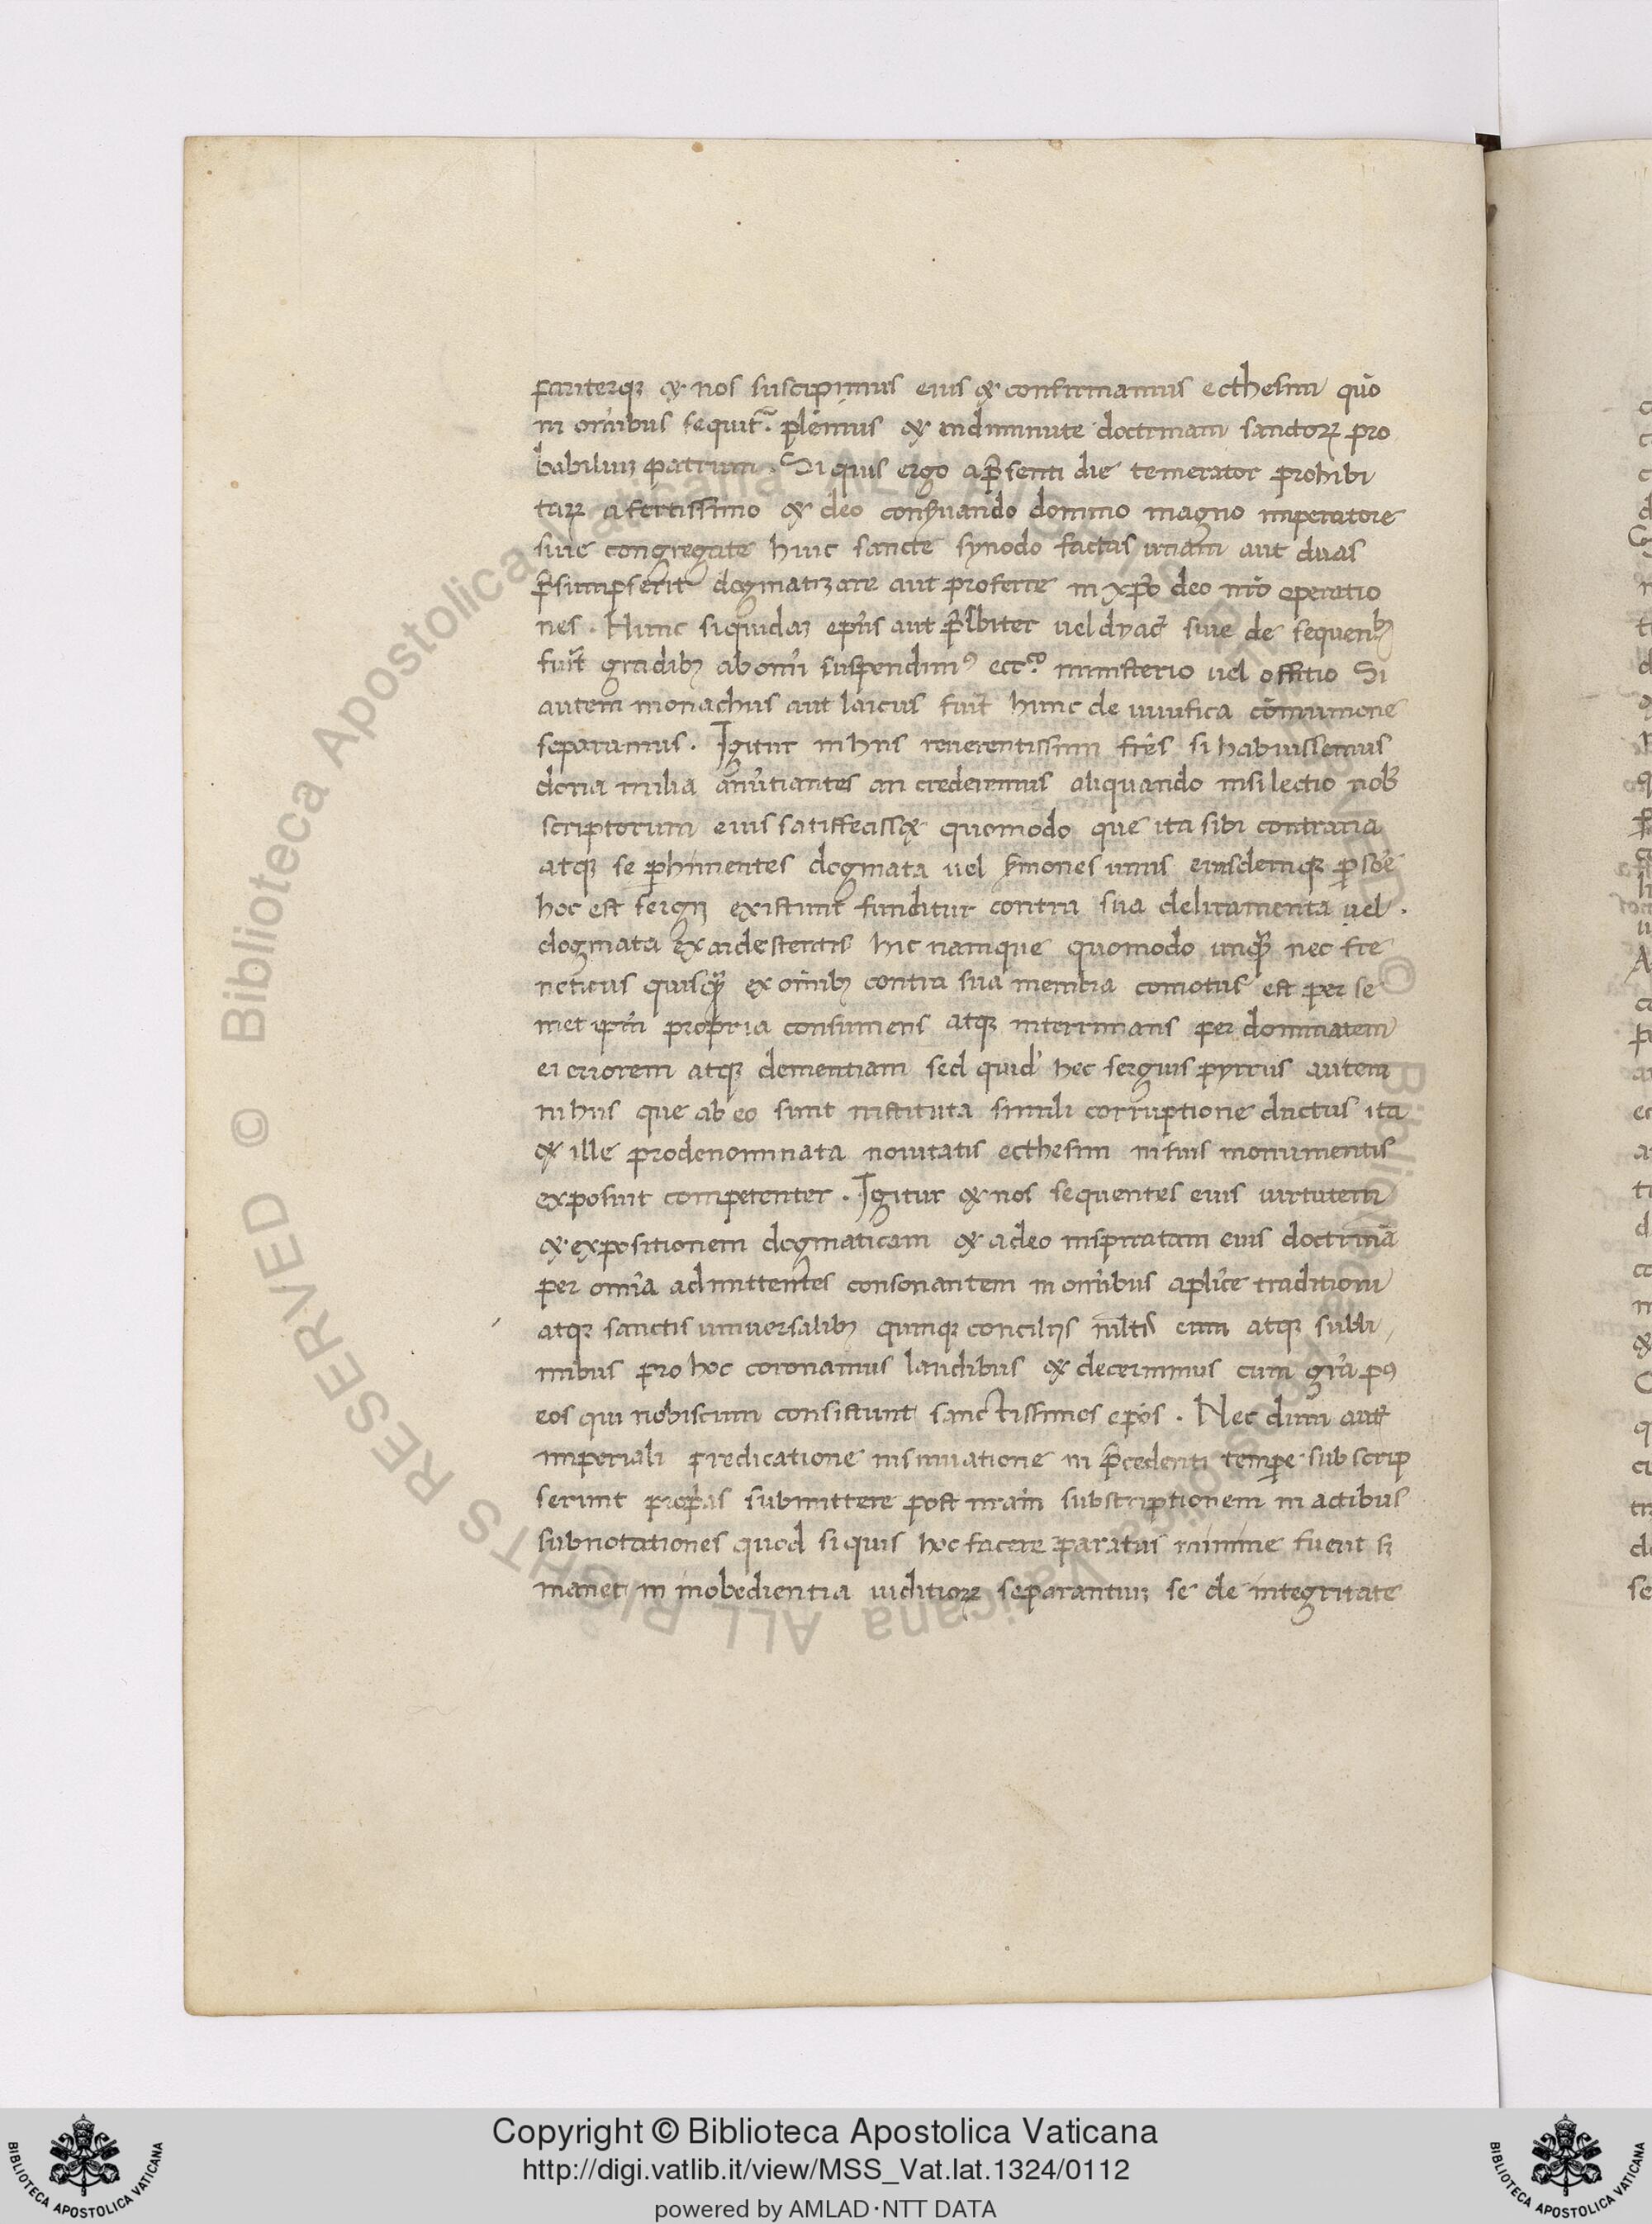 pariterq; & nos suscipimus eius & confirmamus ecthesim quō
in om̄ibus sequit̄. plenius & indiminute doctrinam sanctoꝝ pro
babiliuz patrum. Si quis ergo a p̄senti die temerator prohibi
taꝝ a fortissimo & deo conẜuando domino magno imperatore
siue congregate huic sancte synodo factas unam aut duas
p̄sumpserit dogmatizare aut proferre in xp̄o deo nr̄o operatio
nes. Hunc siquidaz ep̄us aut p̄sbiter uel dyac̄ siue de sequenb;
fuit̄ gradib; ab om̄i suspendim⁹ ecc̄o ministerio uel offitio Si
autem monachus aut laicus fuit̄ hunc de uiuifica cōmunione
separamus. Igitur in hiis reuerentissimi fr̄es si habuissemus
dena milia anūtiantes an credeimus aliquando nisi lectio nob̄
scriptorum eius satiffeciss& quomodo que ita sibi contraria
atq; se perhimentes dogmata uel ẜmones unius eiusdemq; p̱soē
hoc est sergij existunt funditur contra sua deliramenta uel.
dogmata exardestentis hic namque quomodo unq̄ nec fre
neticus quisq̄ ex om̄ib; contra sua membra comotus est per se
met ip̄m propria consumens atq; interimans per dominatem
ei errorem atq; dementiam sed quid hec sergius pyrrus autem
in hiis que ab eo sunt instituta simili corruptione ductus ita
& ille prodenominata nouitatis ecthesim in suis monumentis
exposuit competenter. Igitur & nos sequentes eius uirtutem
& expositionem dogmaticam & a deo inspiratam eius doctrinā
per om̄ia admittentes consonantem in om̄ibus aplice traditioni
atq; sanctis uniuersalib; quinq; concilijs multis eum atq; subli
mibus pro hoc coronamus laudibus & decernimus cum gr̄a p⁹
eos qui nobiscum consistunt sanctissimos ep̄os. Nec dum aut̄
imperiali predicatione insinuatione in p̄cedenti tempe subscrip
serunt prop̄as submittere post nr̄am subscriptionem in actibus
subnotationes quod si quis hoc facere paratus minime fuerit sz
manet in inobedientia uiditioꝝ separantuz se de integritate
Copyright © Biblioteca Apostolica Vaticana
http://digi.vatlib.it/view/MSS_Vat.lat.1324/0112
powered by AMLAD·NTT DATA